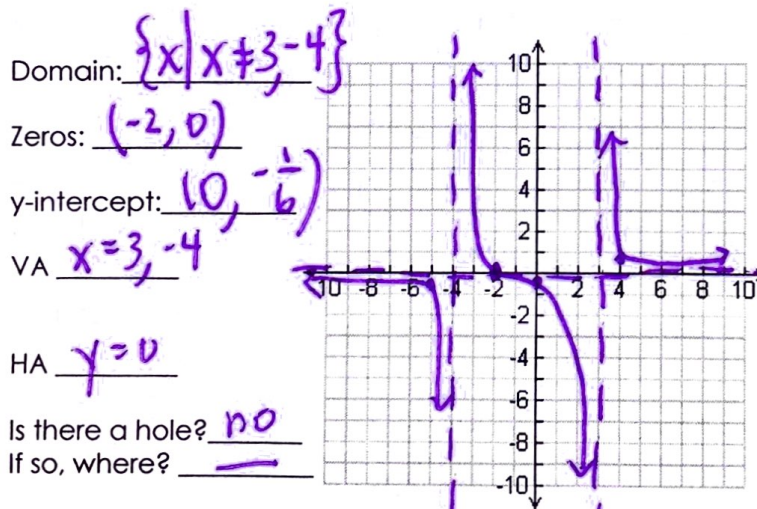 Domain: {x|x≠3,-4}
Zeros: (-2,0)
y-intercept: (0, -1/6)
VA x=3,-4
HA y=0
Is there a hole? no
If so, where? —
10
8
6
4
2
-10 -8 -6 -4 -2 2 4 6 8 10
-2
-4
-6
-8
-10